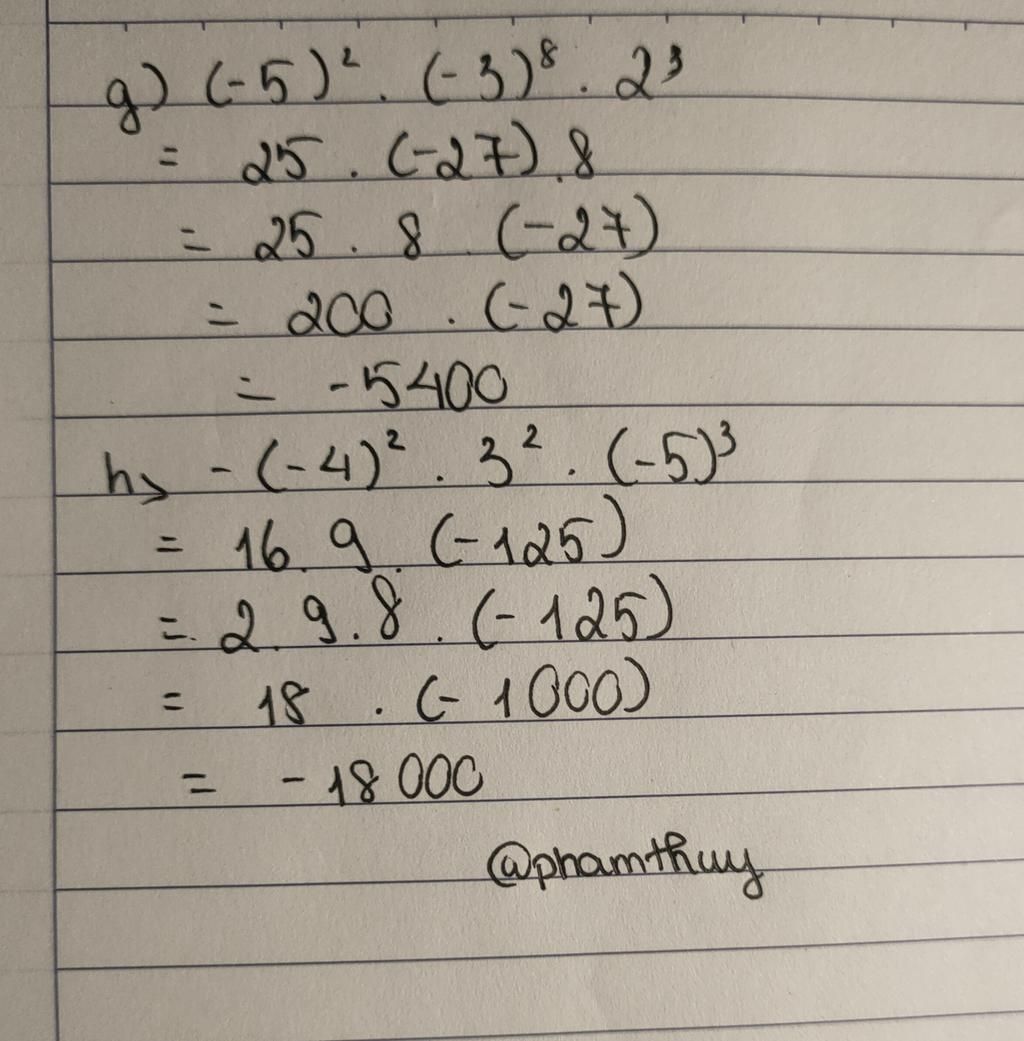 g) (-5)² . (-3)⁸ . 2³
= 25 . (-27) . 8
= 25 . 8 . (-27)
= 200 . (-27)
= -5400
h> -(-4)² . 3² . (-5)³
= 16 . 9 . (-125)
= 2 . 9 . 8 . (-125)
= 18 . (-1000)
= -18 000
@phamthuy